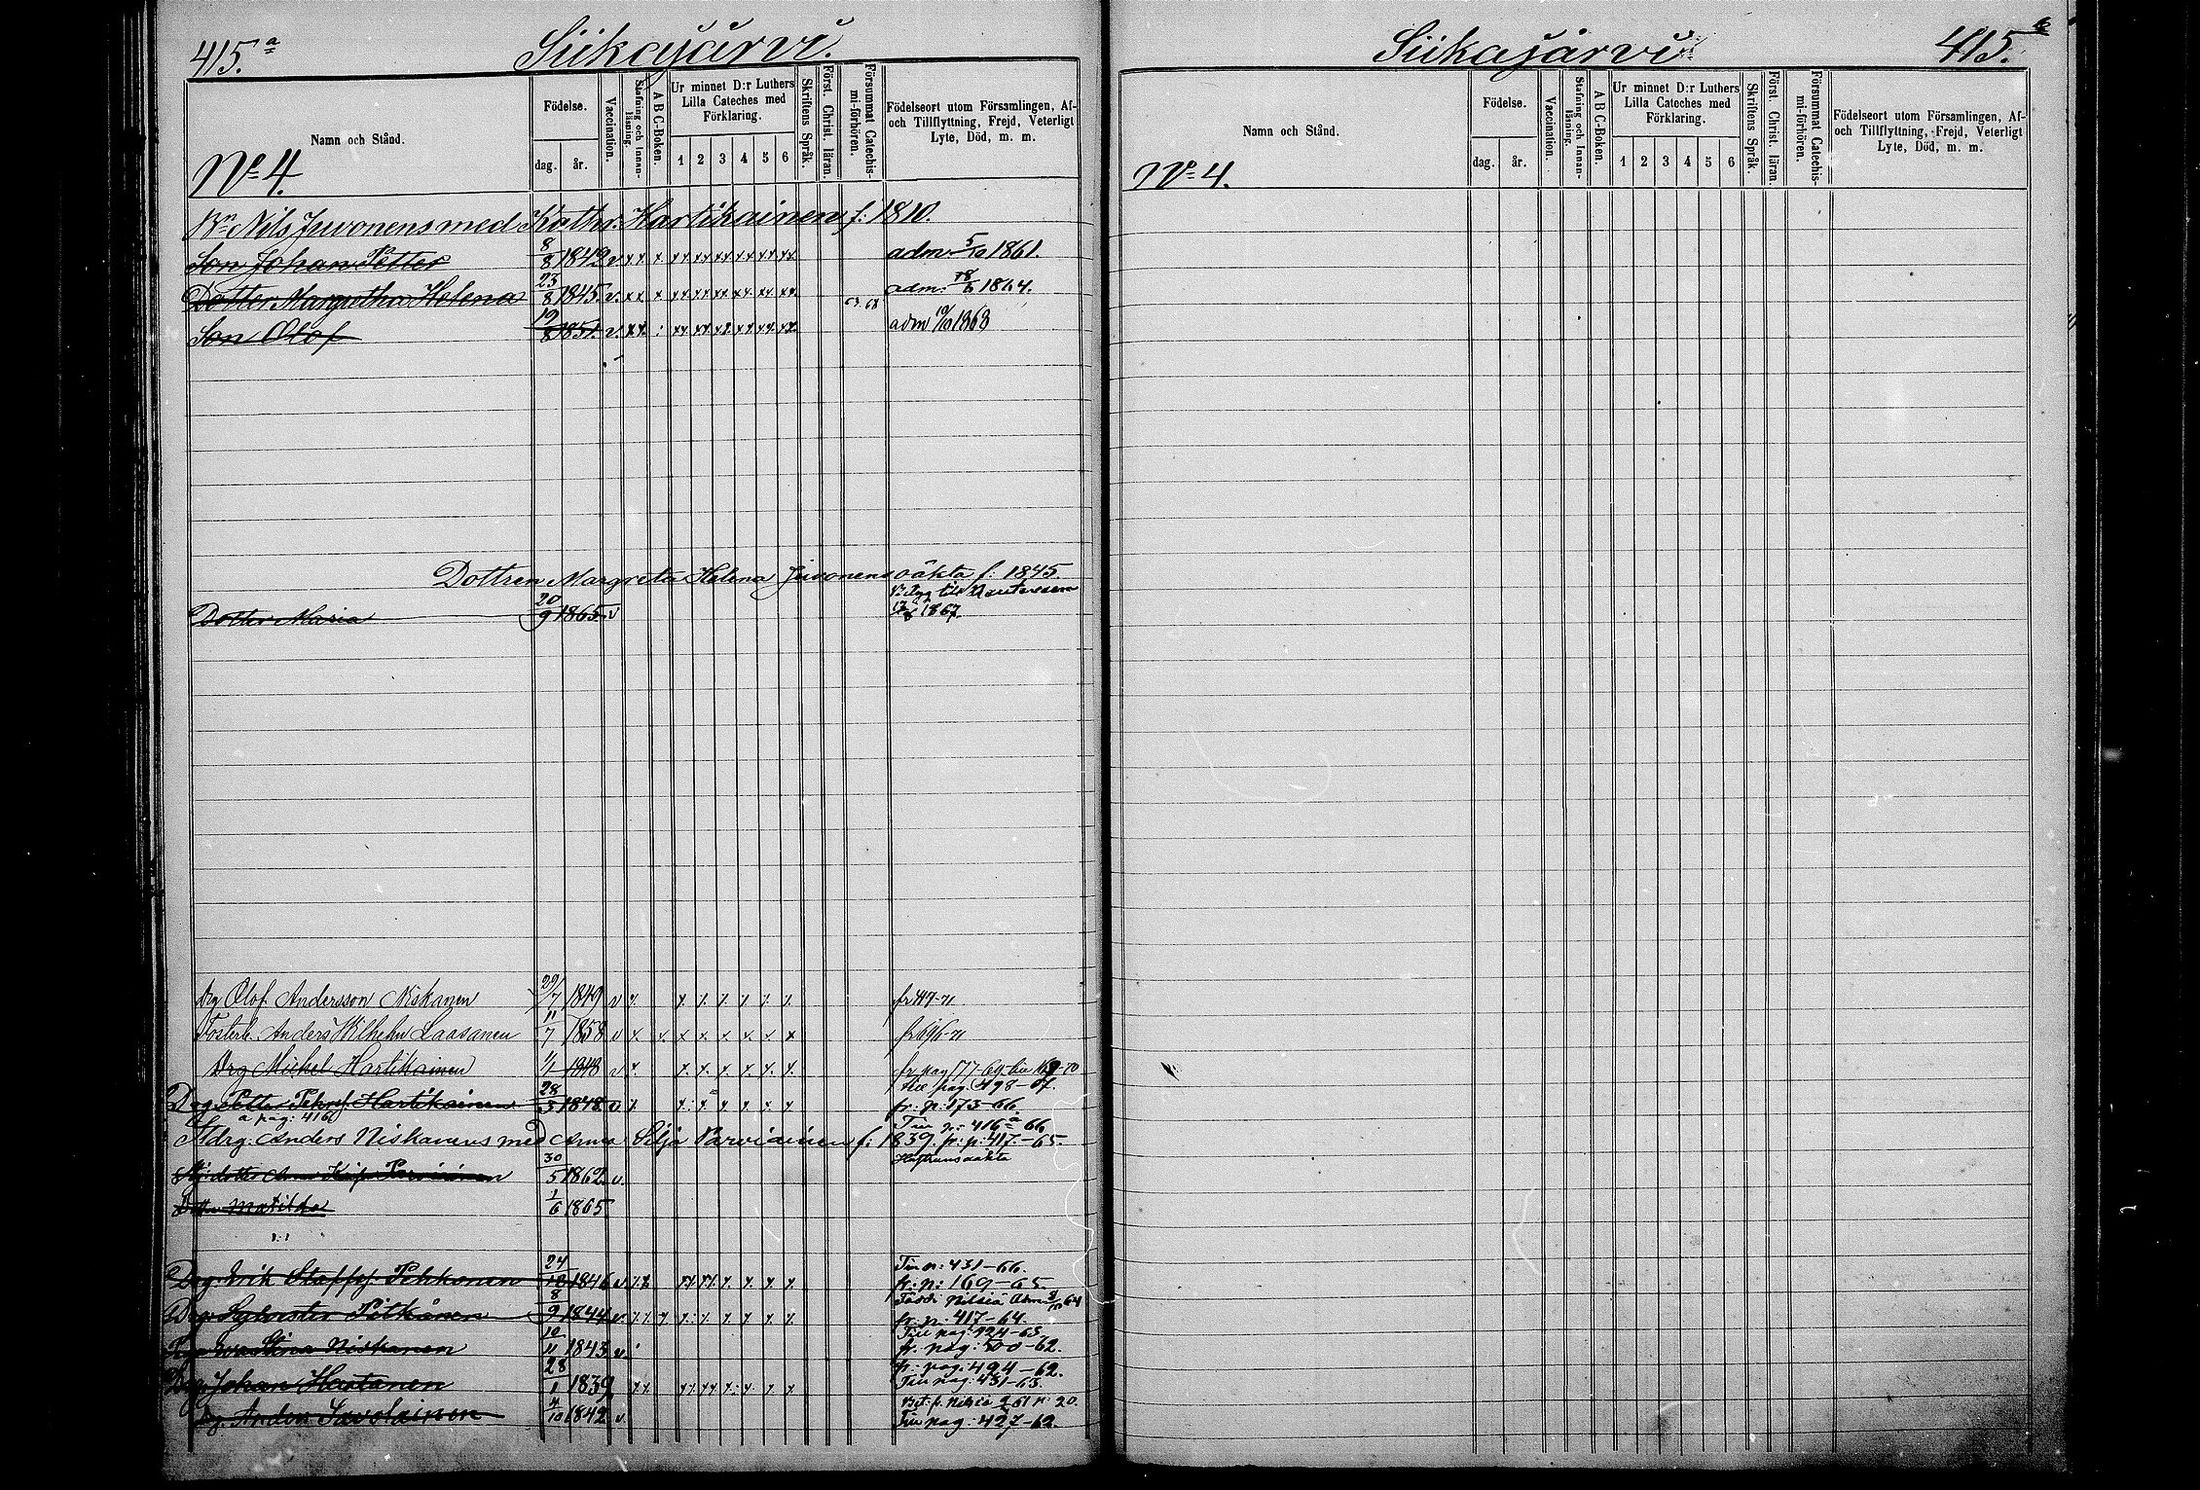 415.a Siikajärvi.
Namn och Stånd.
Födelse.
dag. år.
Vaccination.
Stafning och Innanläsning.
A B C-Boken.
Ur minnet D:r Luthers Lilla Cateches med Förklaring.
1 2 3 4 5 6
Skriftens Språk.
Först. Christ. läran.
Försummat Catechismi-förhören.
Födelseort utom Församlingen, Af- och Tillflyttning, Frejd, Veterligt Lyte, Död, m. m.
No 4.
Bn Nils Juvonens med Kathr. Hartikainen f: 1810.
Son Johan Petter 8/8 1842 v adm 5/10 1861.
Dotter Margretha Helena 23/8 1845 v. 63. 68 adm: 18/6 1864.
Son Olof 19/8 1851. v. adm 10/10 1868
Dottren Margreta Helena Juvonens oäkta f: 1845.
Dotter Maria 20/9 1865 v 1867.
Drg Olof Andersson Niskanen 29/7 1849 v fr 417-71
Fosterb. Anders Wilhelm Laasanen 11/7 1858 v fr 696-71
Drg Michel Hartikainen 1/1 1848 v fr pag 177-69
Drg Petter Pehrsf. Hartikainen 28/3 1848 v fr. p: 173-66.
a pag: 416
Tin p: 416a-66
Mdrg: Anders Niskanens med Anna Silja Parviainen f: 1839. fr: p: 417.-65.
Hustruns oäkta
dotter Anna Parviainen 30/5 1862. v.
Dotter Matilda 1/6 1865
Tin p: 431-66.
Drg. Erik Staffsf. Pehkonen 24/12 1846 v. fr: p: 169-65.
Född i Nilsiä Adm 64
Drg. Sylvester Pitkänen 8/9 1844 v. fr. p: 417-64.
Tin pag: 424-63.
Eva Stina Niskanen 10/11 1843 v. fr. pag: 500-62.
fr: pag: 494-62.
Drg. Johan Hartanen 28/1 1839 Tin pag: 431-63.
Bet. fr. Nilsiä 61 n: 20.
Drg. Anders Savolainen 4/10 1842 v. Tin pag: 427-62.
Siikajärvi 415.
Namn och Stånd.
Födelse.
dag. år.
Vaccination.
Stafning och Innanläsning.
A B C-Boken.
Ur minnet D:r Luthers Lilla Cateches med Förklaring.
1 2 3 4 5 6
Skriftens Språk.
Först. Christ. läran.
Försummat Catechismi-förhören.
Födelseort utom Församlingen, Af- och Tillflyttning, Frejd, Veterligt Lyte, Död, m. m.
No 4.